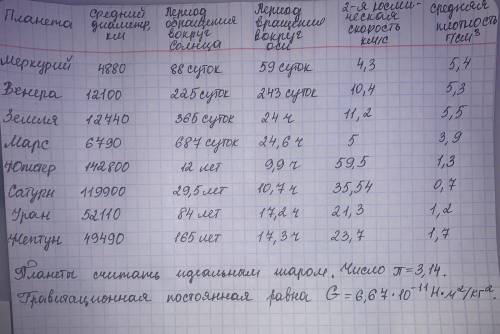 Планета Средний диаметр, км Период обращения вокруг Солнца Период вращения вокруг оси 2-я космическая скорость км/с Средняя плотность г/см³
Меркурий 4880 88 суток 59 суток 4,3 5,4
Венера 12100 225 суток 243 суток 10,4 5,3
Земля 12740 365 суток 24 ч 11,2 5,5
Марс 6790 687 суток 24,6 ч 5 3,9
Юпитер 142800 12 лет 9,9 ч 59,5 1,3
Сатурн 119900 29,5 лет 10,7 ч 35,54 0,7
Уран 52110 84 лет 17,2 ч 21,3 1,2
Нептун 49490 165 лет 17,3 ч 23,7 1,7
Планеты считать идеальным шаром. Число π=3,14.
Гравитационная постоянная равна G=6,67·10⁻¹¹ Н·м²/кг².